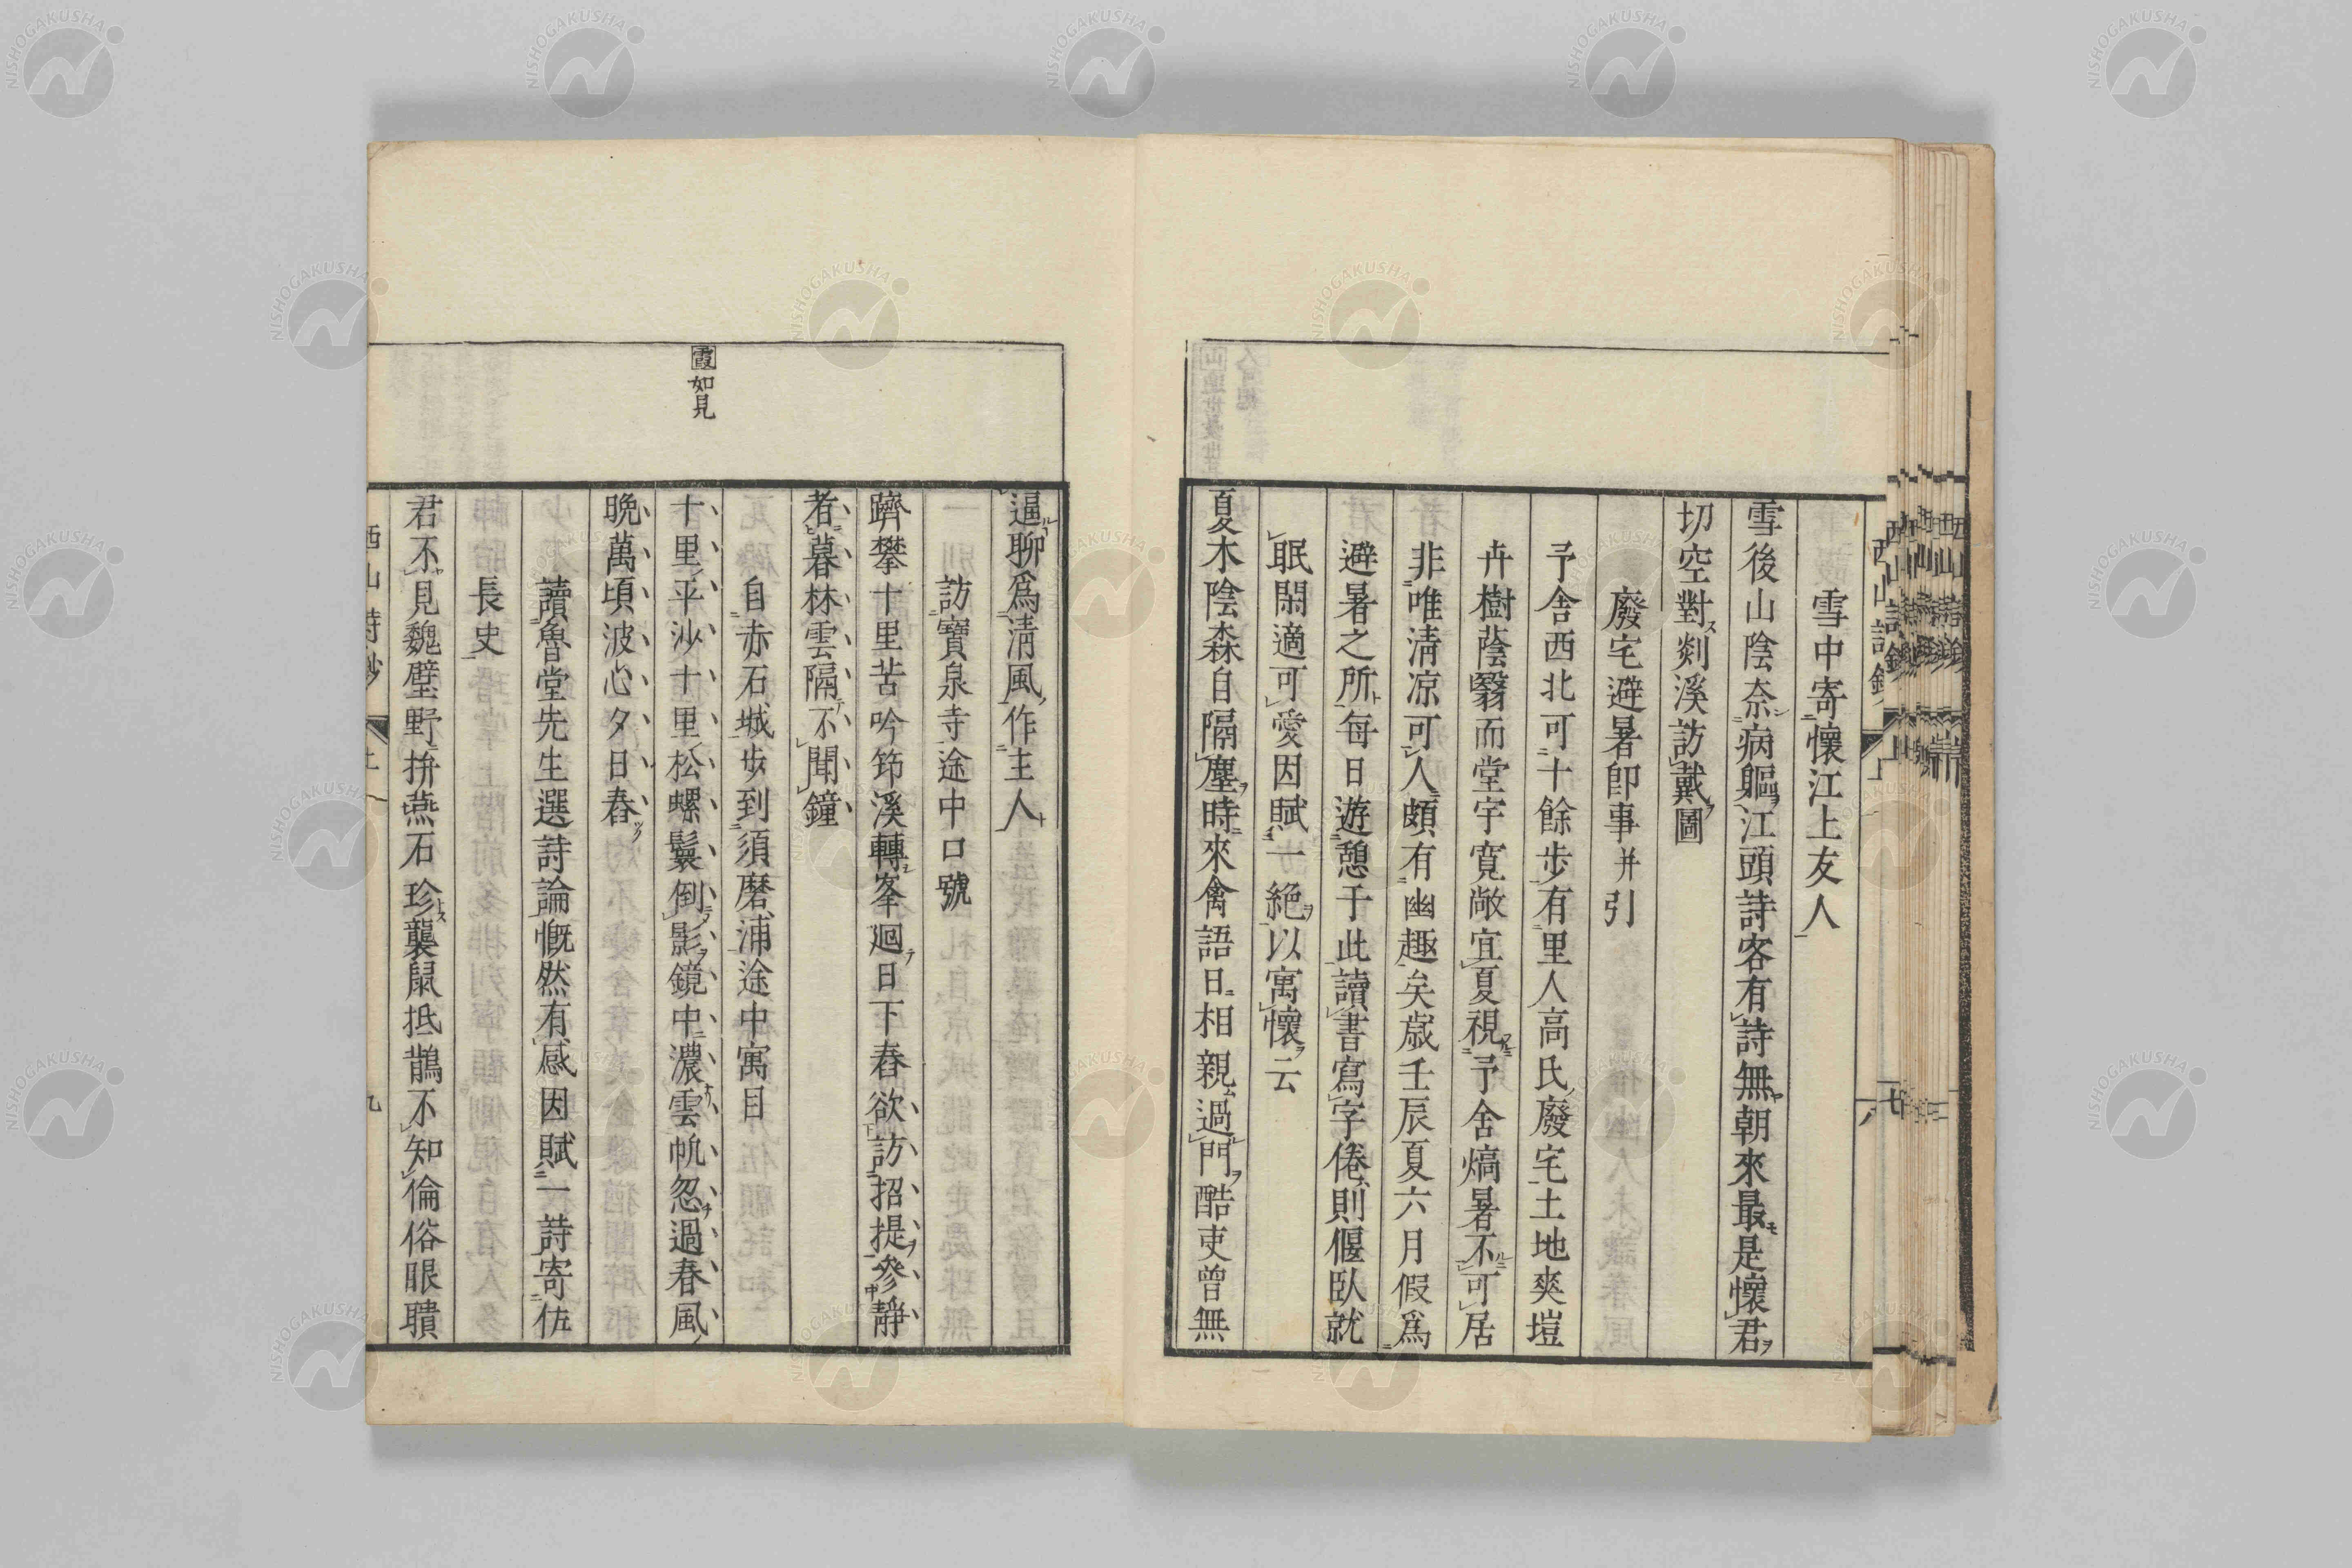 雪中寄懷江上友人
雪後山陰奈病軀江頭詩客有詩無朝來最是懷君
切空對剡溪訪戴圖
廢宅避暑卽事并引
予舍西北可十餘步有里人高氏廢宅土地爽塏
卉樹蔭翳而堂宇寬敞宜夏視予舍熇暑不可居
非唯淸凉可人頗有幽趣矣歲壬辰夏六月假爲
避暑之所每日遊憩于此讀書寫字倦則偃臥就
眠閑適可愛因賦一絶以寓懷云
夏木陰森自隔塵時來禽語日相親過門酷吏曾無
逼聊爲淸風作主人
訪寶泉寺途中口號
躋攀十里苦吟筇溪轉峯廻日下舂欲訪招提參靜
者暮林雲隔不聞鐘
自赤石城步到須磨浦途中寓目
霞如見
十里平沙十里松螺鬟倒影鏡中濃雲帆忽過春風
晚萬頃波心夕日舂
讀魯堂先生選詩論慨然有感因賦一詩寄佐
長史
君不見魏璧野拚燕石珍襲鼠抵鵲不知倫俗眼聵
西山詩鈔 上 九
NISHOGAKUSHA